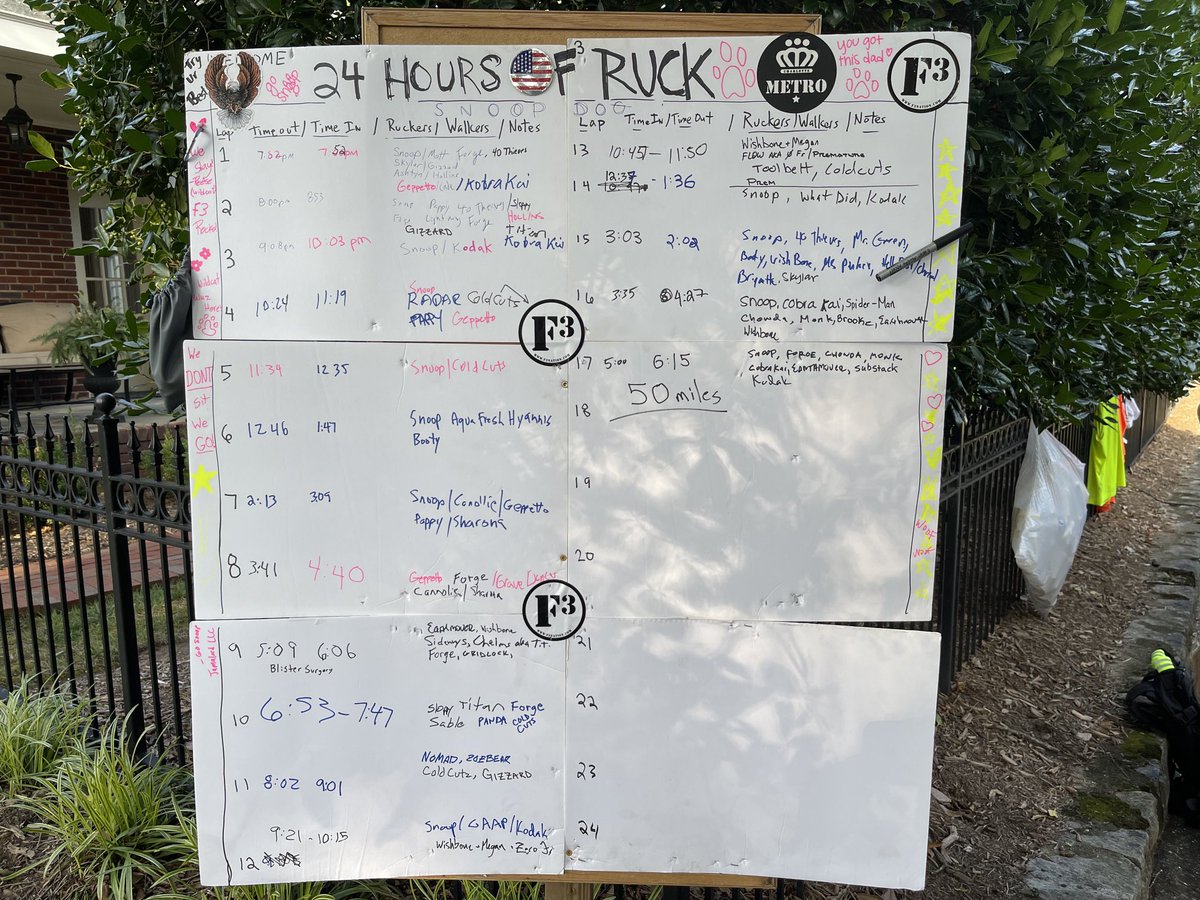 24 HOURS OF RUCK
SNOOP DOG
you got this dad
CHARLOTTE
METRO
F3
Lap Time out / Time In / Ruckers / Walkers / Notes
1 7:52pm
Snoop / Matt Forge, 40 Thieves
Geppetto / Kobra Kai
2 8:00pm 853
Forge
GIZZARD
Titan
Kobra Kai
3 9:08pm 10:03 pm Snoop / Kodak
4 10:24 11:19 Snoop
RADAR Cold cuts
Geppetto
We
DONT
Sit
We
GO!
5 11:34 12 35 Snoop / Cold Cuts
6 12 46 1:47 Snoop Aqua Fresh Hyannis
Booty
7 2:13 3:09 Snoop / Canollic / Geppetto
Poppy / Sharona
8 3:41 4:40 Geppetto Forge
Cannolis / Sharma
F3
9 5:09 6:06 Earthmover, Wishbone
Sidways, Chelms aka T.T.
Forge, GRIDLOCK,
Blister Surgery
10 6:53-7:47 Sloppy Titan Forge
Sable PANDA COLD CUTS
11 8:02 9:01 NOMAD, ZOEBEAR
Cold Cutz, GIZZARD
12 9:21 - 10:15 Snoop / GAAP / Kodak
Wishbone + Megan
Lap Time In / Time Out / Ruckers / Walkers / Notes
13 10:45 - 11:50 Wishbone + Megan
Toolbelt, Coldcuts
14 12:37 - 1:36 Prem
Snoop, What Did, Kodak
15 3:03 2:02 Snoop, 40 Thieves, Mr. Green,
Booty, Wish Bone,
Skylar
16 3:35 4:27 Snoop, Cobra Kai, Spider-Man
Chowda, Monk, Brooke, Earthmover
Wishbone
F3
17 5:00 6:15 Snoop, FORGE, CHOWDA, MONK
Cobra Kai, EARTHMOVER, Substack
Kodak
18 50 miles
19
20
WOOF
WOOF
21
22
23
24